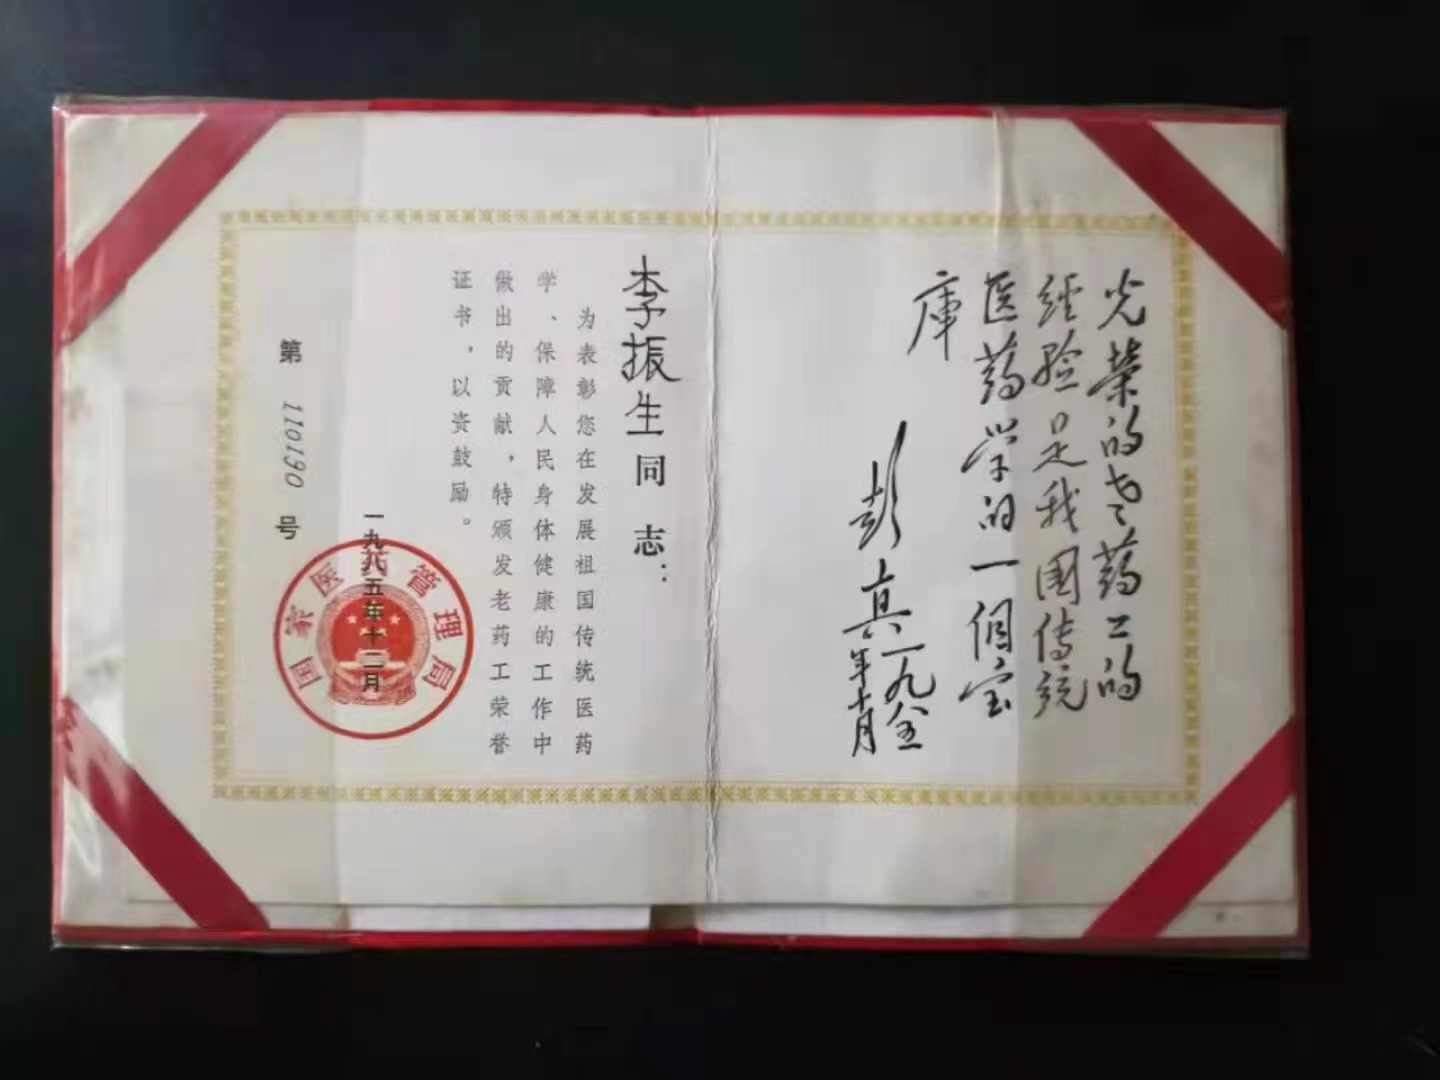 光荣的老药工的
经验是我国传统
医药学的一个宝
库
彭真一九八五
年十月
李振生同志：
为表彰您在发展祖国传统医药
学、保障人民身体健康的工作中
做出的贡献，特颁发老药工荣誉
证书，以资鼓励。
一九八五年十二月
国家医药管理局
第 110190 号